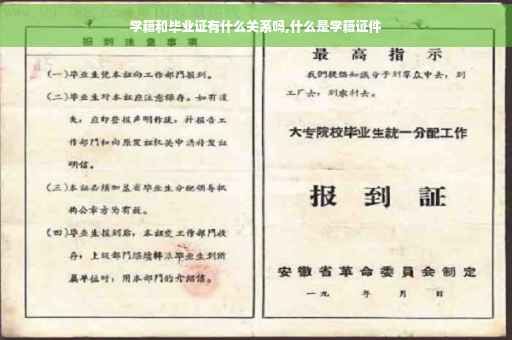 学籍和毕业证有什么关系吗,什么是学籍证件
报到注意事项
(一)毕业生凭本证向工作部门报到。
(二)毕业生对本证应注意保存。如有遗
失,应即登报声明作废,并报告工
作部门和向原发证机关申请补发证
明信。
(三)本证必须加盖省毕业生分配领导机
构公章方为有效。
(四)毕业生报到后,本证交工作部门收
存;上级部门
属单位时,用本部门的介绍信。
最高指示
我们提倡知识分子到群众中去,到
工厂去,到农村去。
大专院校毕业生统一分配工作
报到証
安徽省革命委员会制定
一九 年 月 日